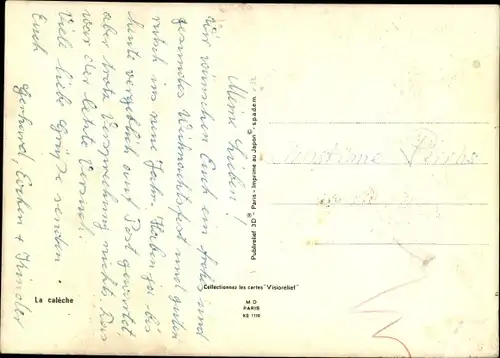 Meine Lieben!
Wir wünschen Euch ein frohes und
gesundes Weihnachtsfest und guten
rutsch ins neue Jahr. Haben ja bis
heute vergeblich auf Post gewartet
aber trotz Versprechung nichts. Das
war der letzte Versuch.
Viele liebe Grüße senden
Euch
Gerhard, + Kinder
La calèche
Publirelief 3D ® - Paris - Imprime au Japon © - spadem
Collectionnez les cartes "Visiorelief"
M D
PARIS
KS 1110